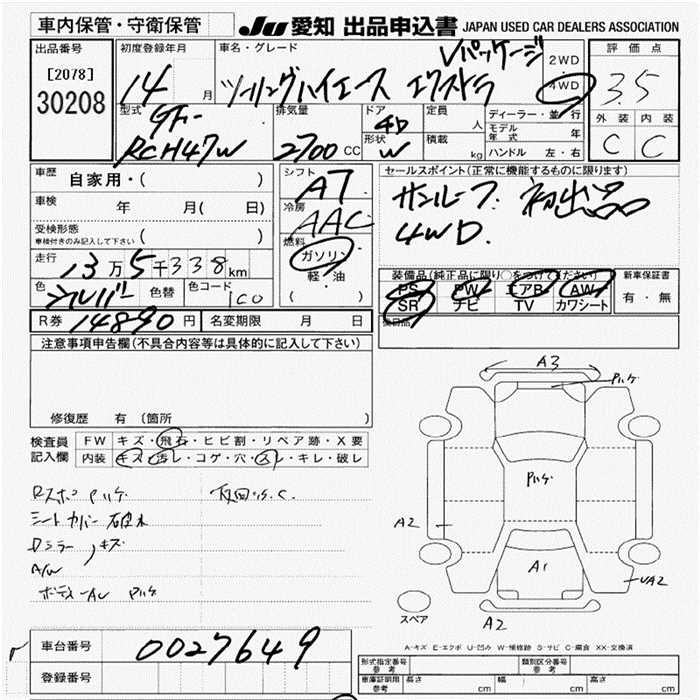 車内保管・守衛保管
JU 愛知 出品申込書 JAPAN USED CAR DEALERS ASSOCIATION
出品番号
[2078]
30208
初度登録年月
14 月
車名・グレード
Vパッケージ
ツーリングハイエース エクストラ
2WD
4WD
評価点
3.5
外装 内装
C C
型式
GF-
RCH47W
排気量
2700 CC
ドア
4D
形状
W
定員
人
積載
kg
ディーラー・並行
モデル年式 年
ハンドル 左・右
車歴
自家用・( )
車検 年 月( 日)
受検形態
車検付きのみ記入して下さい ( )
走行 13万5千338km
色 シルバー 色替 色コード 1C0
R券 14890円 名変期限 月 日
シフト
AT
冷房
AAC
燃料
ガソリン
軽・油
( )
セールスポイント(正常に機能するものに限ります)
サンルーフ 初出品
4WD.
装備品(純正品に限り○をつけてください)
PS PW エアB AW
SR ナビ TV カワシート
新車保証書
有・無
注意事項申告欄(不具合内容等は具体的に記入して下さい)
修復歴 有 (箇所 )
検査員記入欄
FW キズ・飛石・ヒビ割・リペア跡・X要
内装 キズ・汚レ・コゲ・穴・スレ・キレ・破レ
Rスポ ハゲ
シートカバー
Dミラー キズ
A/W
ボディーAU ハゲ
A3
ハゲ
ハゲ
A2
A1
UA2
A2
スペア
A-キズ E-エクボ U-凹み W-補修跡 S-サビ C-腐食 XX-交換済
車台番号 0027649
登録番号
形式指定番号
参考
類別区分番号
参考
車庫証明用
参考
長さ cm
幅 cm
高さ cm